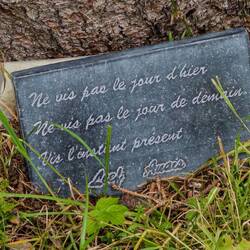 Ne vis pas le jour d'hier
Ne vis pas le jour de demain.
Vis l'instant présent